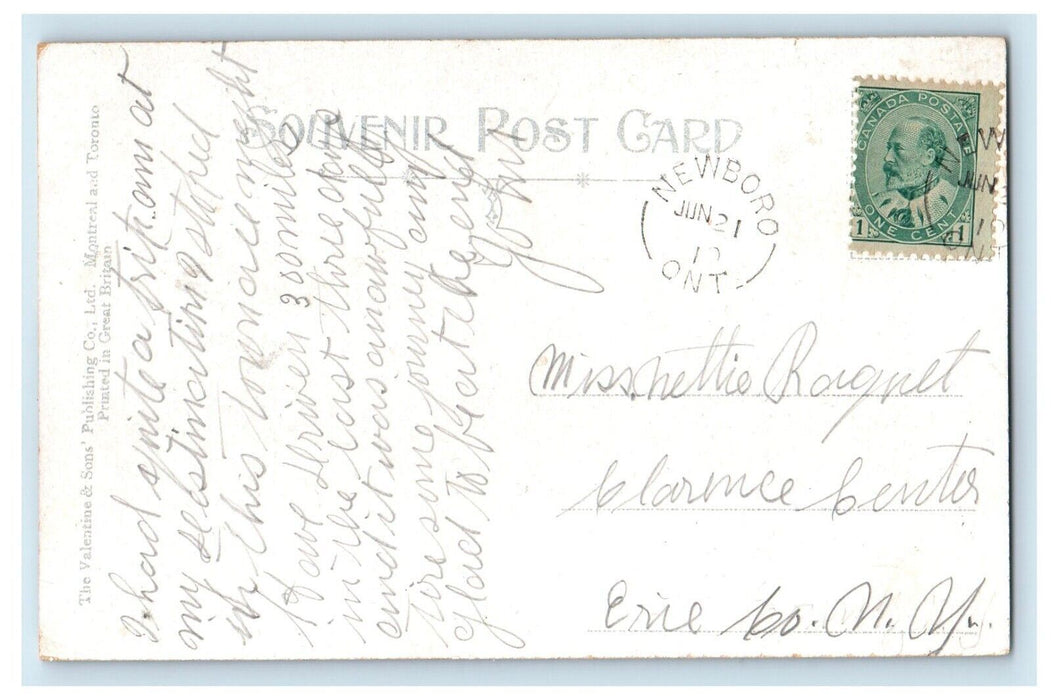 SOUVENIR POST CARD
The Valentine & Sons' Publishing Co., Ltd. Montreal and Toronto
Printed in Great Britain
CANADA POSTAGE
ONE CENT
1 1
NEWBORO
JUN 21
10
ONT
I had quite a trip. am at
my destination stoped
in this town one night
I have driven 300 miles
in the last three days
and it was an awfull
tiresome journey am
glad to be at the end
Miss Nettie Raquet
Clarence Center
Erie Co. N. Y.